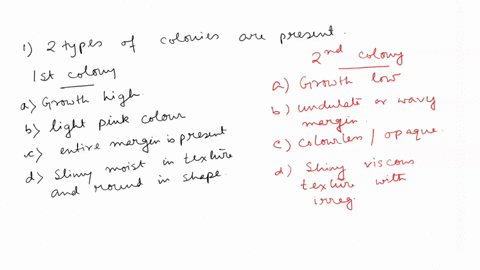 1) 2 types of colonies are present.
1st colony
a) Growth high.
b) light pink colour
c) entire margin is present
d) Slimy moist in texture
and round in shape.
2nd colony
a) Growth low
b) undulate or wavy
margin.
c) Colourless / opaque.
d) Shiny viscous
texture with
irreg